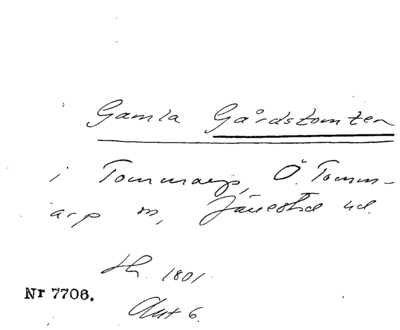 Gamla Gårdstomten
i Tommarp, Ö. Tomm-
arp sn, Järrestad hd.
Sk. 1801.
Nr 7706.
Akt 6.